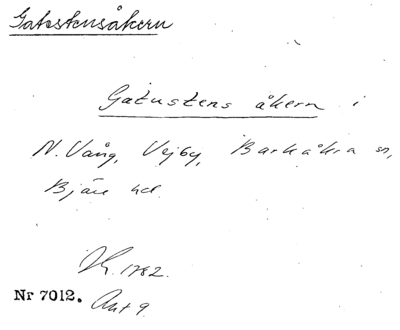 Gatestensåkern
Gatustens åkern i
N. Vång, Vejby, Barkåkra sn,
Bjäre hd.
1782.
Nr 7012. Akt 9.